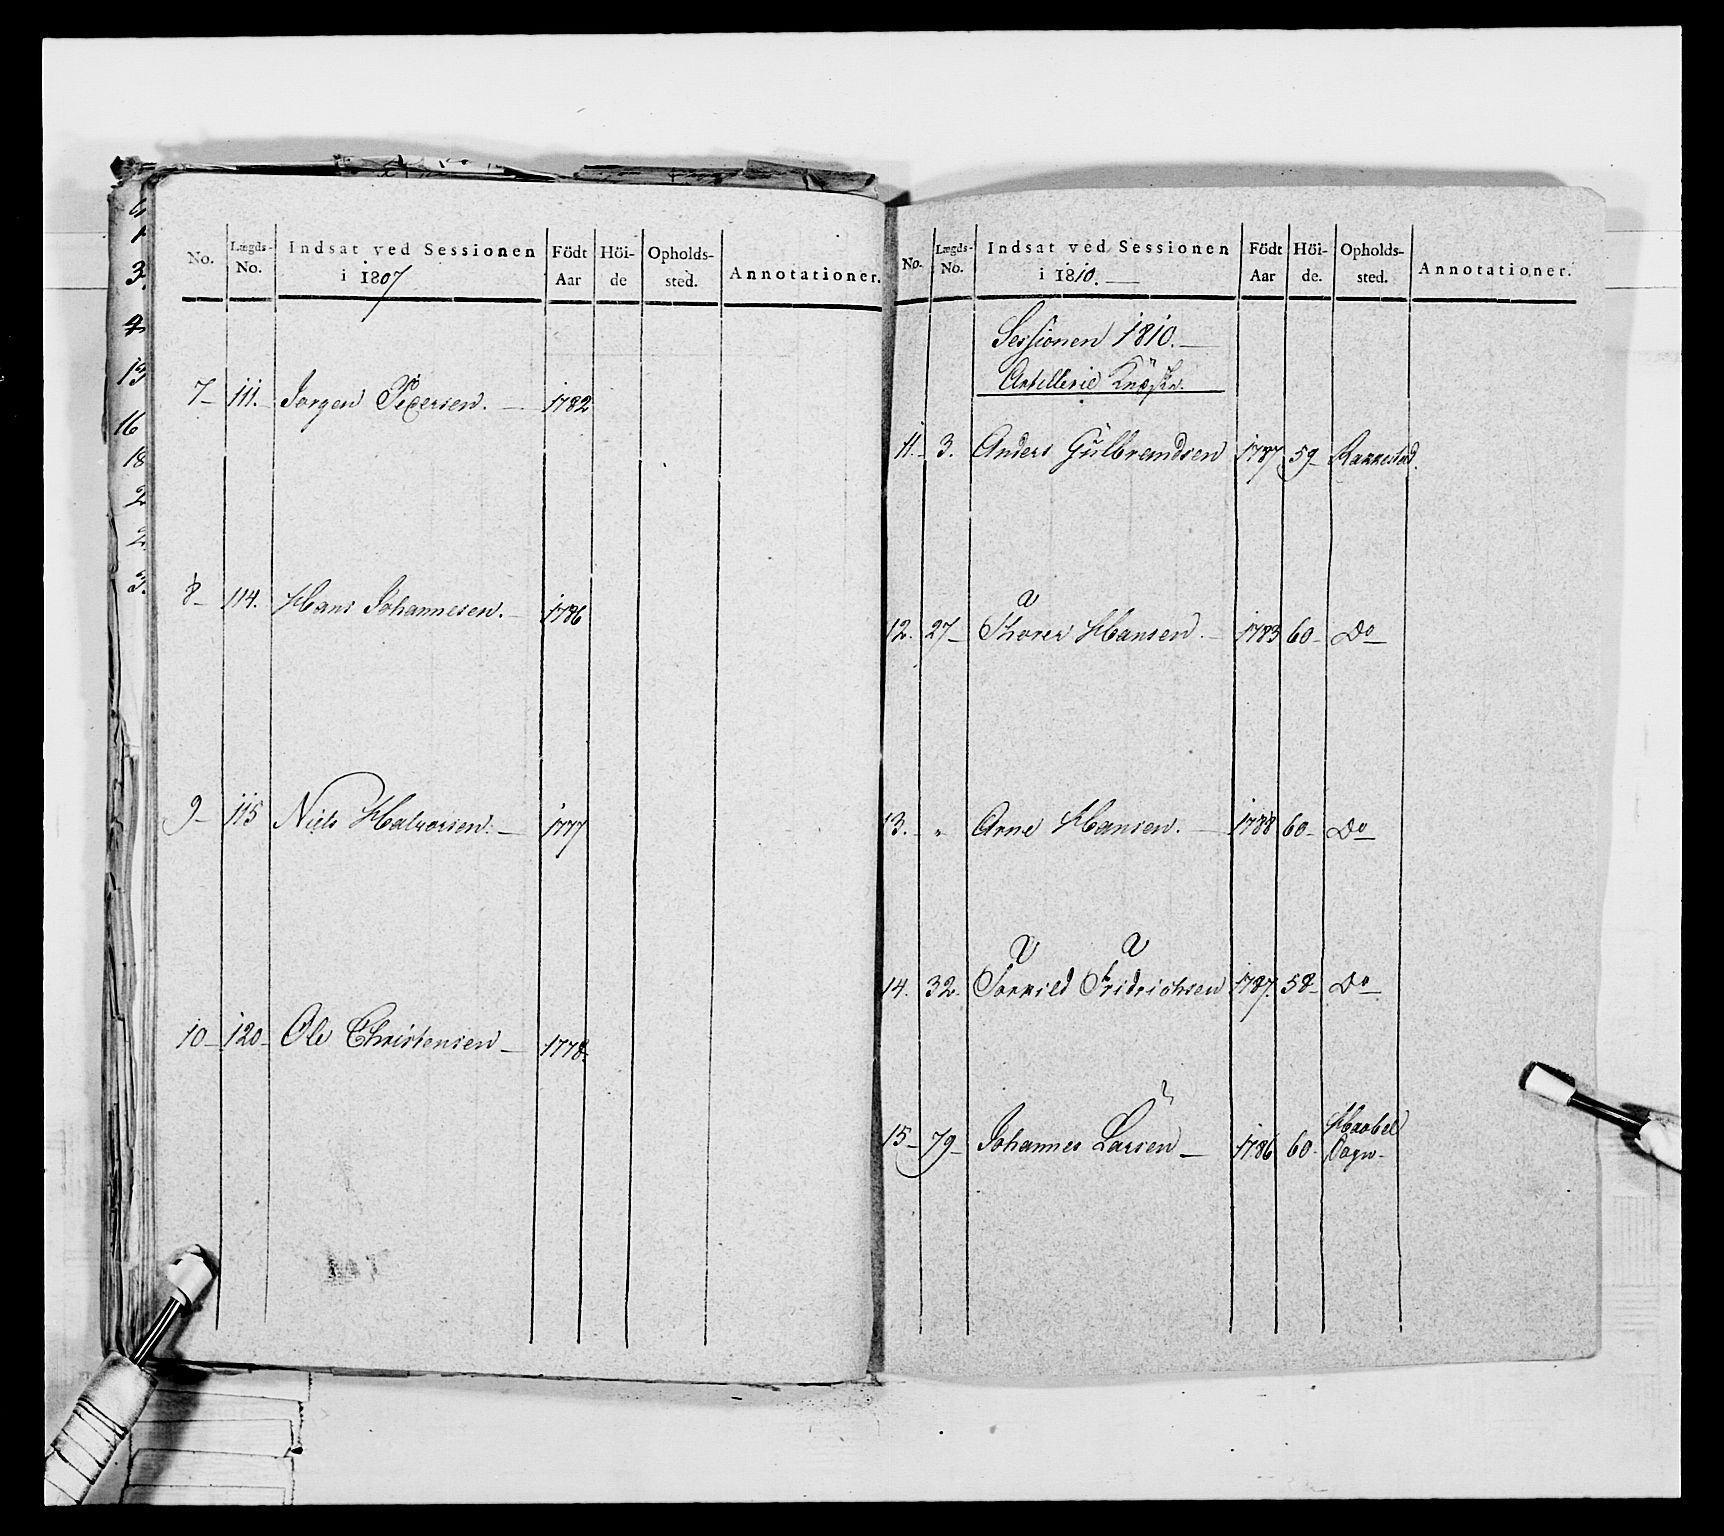 No. Lægds-No. Indsat ved Sessionen i 1807 Födt Aar Höi-de Opholds-sted. Annotationer.
7- 111.- Jørgen Pedersen. - 1782
8- 114. Hans Johannesen. - 1786
9- 115 Niels Halvorsen. - 1777
10- 120- Ole Christensen - 1778.
6
3.
4
15
16
18
2
2
3.
No. Lægds-No. Indsat ved Sessionen i 1810. Födt Aar Höi-de. Opholds-sted. Annotationer.
Sessionen 1810.
Artillerie
11.- 3. Anders Gulbrandsen 1787 59- Rakkestad.
12. 27- Thorer Hansen. - 1783 60- Do
13. " Arne Hansen. - 1788 60- Do
14. 32. Torkild Fridrichsen 1787. 58- Do
15- 79- Johannes Larsen - 1786 60- Haabel Sogn-